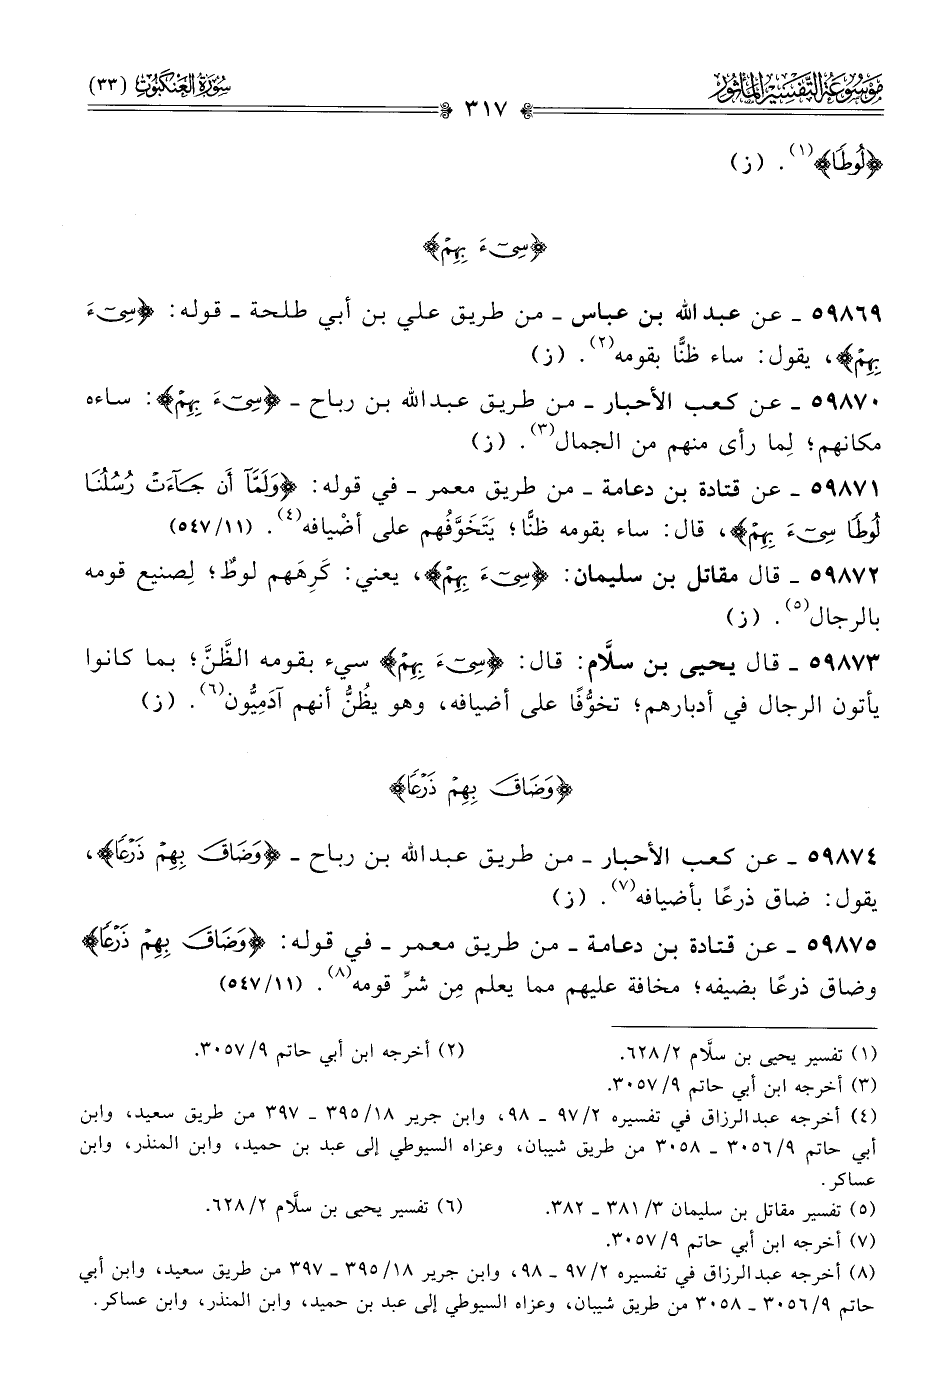 مَوْسُوعَة التَّفْسِير المَأثُور
﴿ ٣١٧ ﴾
سُورَةُ العَنكَبُوتِ (٣٣)
﴿لُوطًا﴾(١). (ز)
﴿سِيٓءَ بِهِمْ﴾
٥٩٨٦٩ ـ عن عبد الله بن عباس ـ من طريق علي بن أبي طلحة ـ قوله: ﴿سِيٓءَ
بِهِمْ﴾، يقول: ساء ظنًّا بقومه(٢). (ز)
٥٩٨٧٠ ـ عن كعب الأحبار ـ من طريق عبدالله بن رباح ـ ﴿سِيٓءَ بِهِمْ﴾: ساءه
مكانهم؛ لِما رأى منهم من الجمال(٣). (ز)
٥٩٨٧١ ـ عن قتادة بن دعامة ـ من طريق معمر ـ في قوله: ﴿وَلَمَّآ أَن جَآءَتْ رُسُلُنَا
لُوطًا سِيٓءَ بِهِمْ﴾، قال: ساء بقومه ظنًّا؛ يَتَخَوَّفُهم على أضْيافه(٤). (٥٤٧/١١)
٥٩٨٧٢ ـ قال مقاتل بن سليمان: ﴿سِيٓءَ بِهِمْ﴾، يعني: كَرِهَهم لوطٌ؛ لِصنيع قومه
بالرجال(٥). (ز)
٥٩٨٧٣ ـ قال يحيى بن سلَّام: قال: ﴿سِيٓءَ بِهِمْ﴾ سيء بقومه الظَّنَّ؛ بما كانوا
يأتون الرجال في أدبارهم؛ تخوُّفًا على أضيافه، وهو يظُنُّ أنهم آدَمِيُّون(٦). (ز)
﴿وَضَاقَ بِهِمْ ذَرْعًا﴾
٥٩٨٧٤ ـ عن كعب الأحبار ـ من طريق عبدالله بن رباح ـ ﴿وَضَاقَ بِهِمْ ذَرْعًا﴾،
يقول: ضاق ذرعًا بأضيافه(٧). (ز)
٥٩٨٧٥ ـ عن قتادة بن دعامة ـ من طريق معمر ـ في قوله: ﴿وَضَاقَ بِهِمْ ذَرْعًا﴾
وضاق ذرعًا بضيفه؛ مخافة عليهم مما يعلم مِن شرِّ قومه(٨). (٥٤٧/١١)
(١) تفسير يحيى بن سلَّام ٦٢٨/٢. (٢) أخرجه ابن أبي حاتم ٣٠٥٧/٩.
(٣) أخرجه ابن أبي حاتم ٣٠٥٧/٩.
(٤) أخرجه عبدالرزاق في تفسيره ٩٧/٢ ـ ٩٨، وابن جرير ٣٩٥/١٨ ـ ٣٩٧ من طريق سعيد، وابن
أبي حاتم ٣٠٥٦/٩ ـ ٣٠٥٨ من طريق شيبان، وعزاه السيوطي إلى عبد بن حميد، وابن المنذر، وابن
عساكر.
(٥) تفسير مقاتل بن سليمان ٣٨١/٣ ـ ٣٨٢. (٦) تفسير يحيى بن سلَّام ٦٢٨/٢.
(٧) أخرجه ابن أبي حاتم ٣٠٥٧/٩.
(٨) أخرجه عبدالرزاق في تفسيره ٩٧/٢ ـ ٩٨، وابن جرير ٣٩٥/١٨ ـ ٣٩٧ من طريق سعيد، وابن أبي
حاتم ٣٠٥٦/٩ ـ ٣٠٥٨ من طريق شيبان، وعزاه السيوطي إلى عبد بن حميد، وابن المنذر، وابن عساكر.